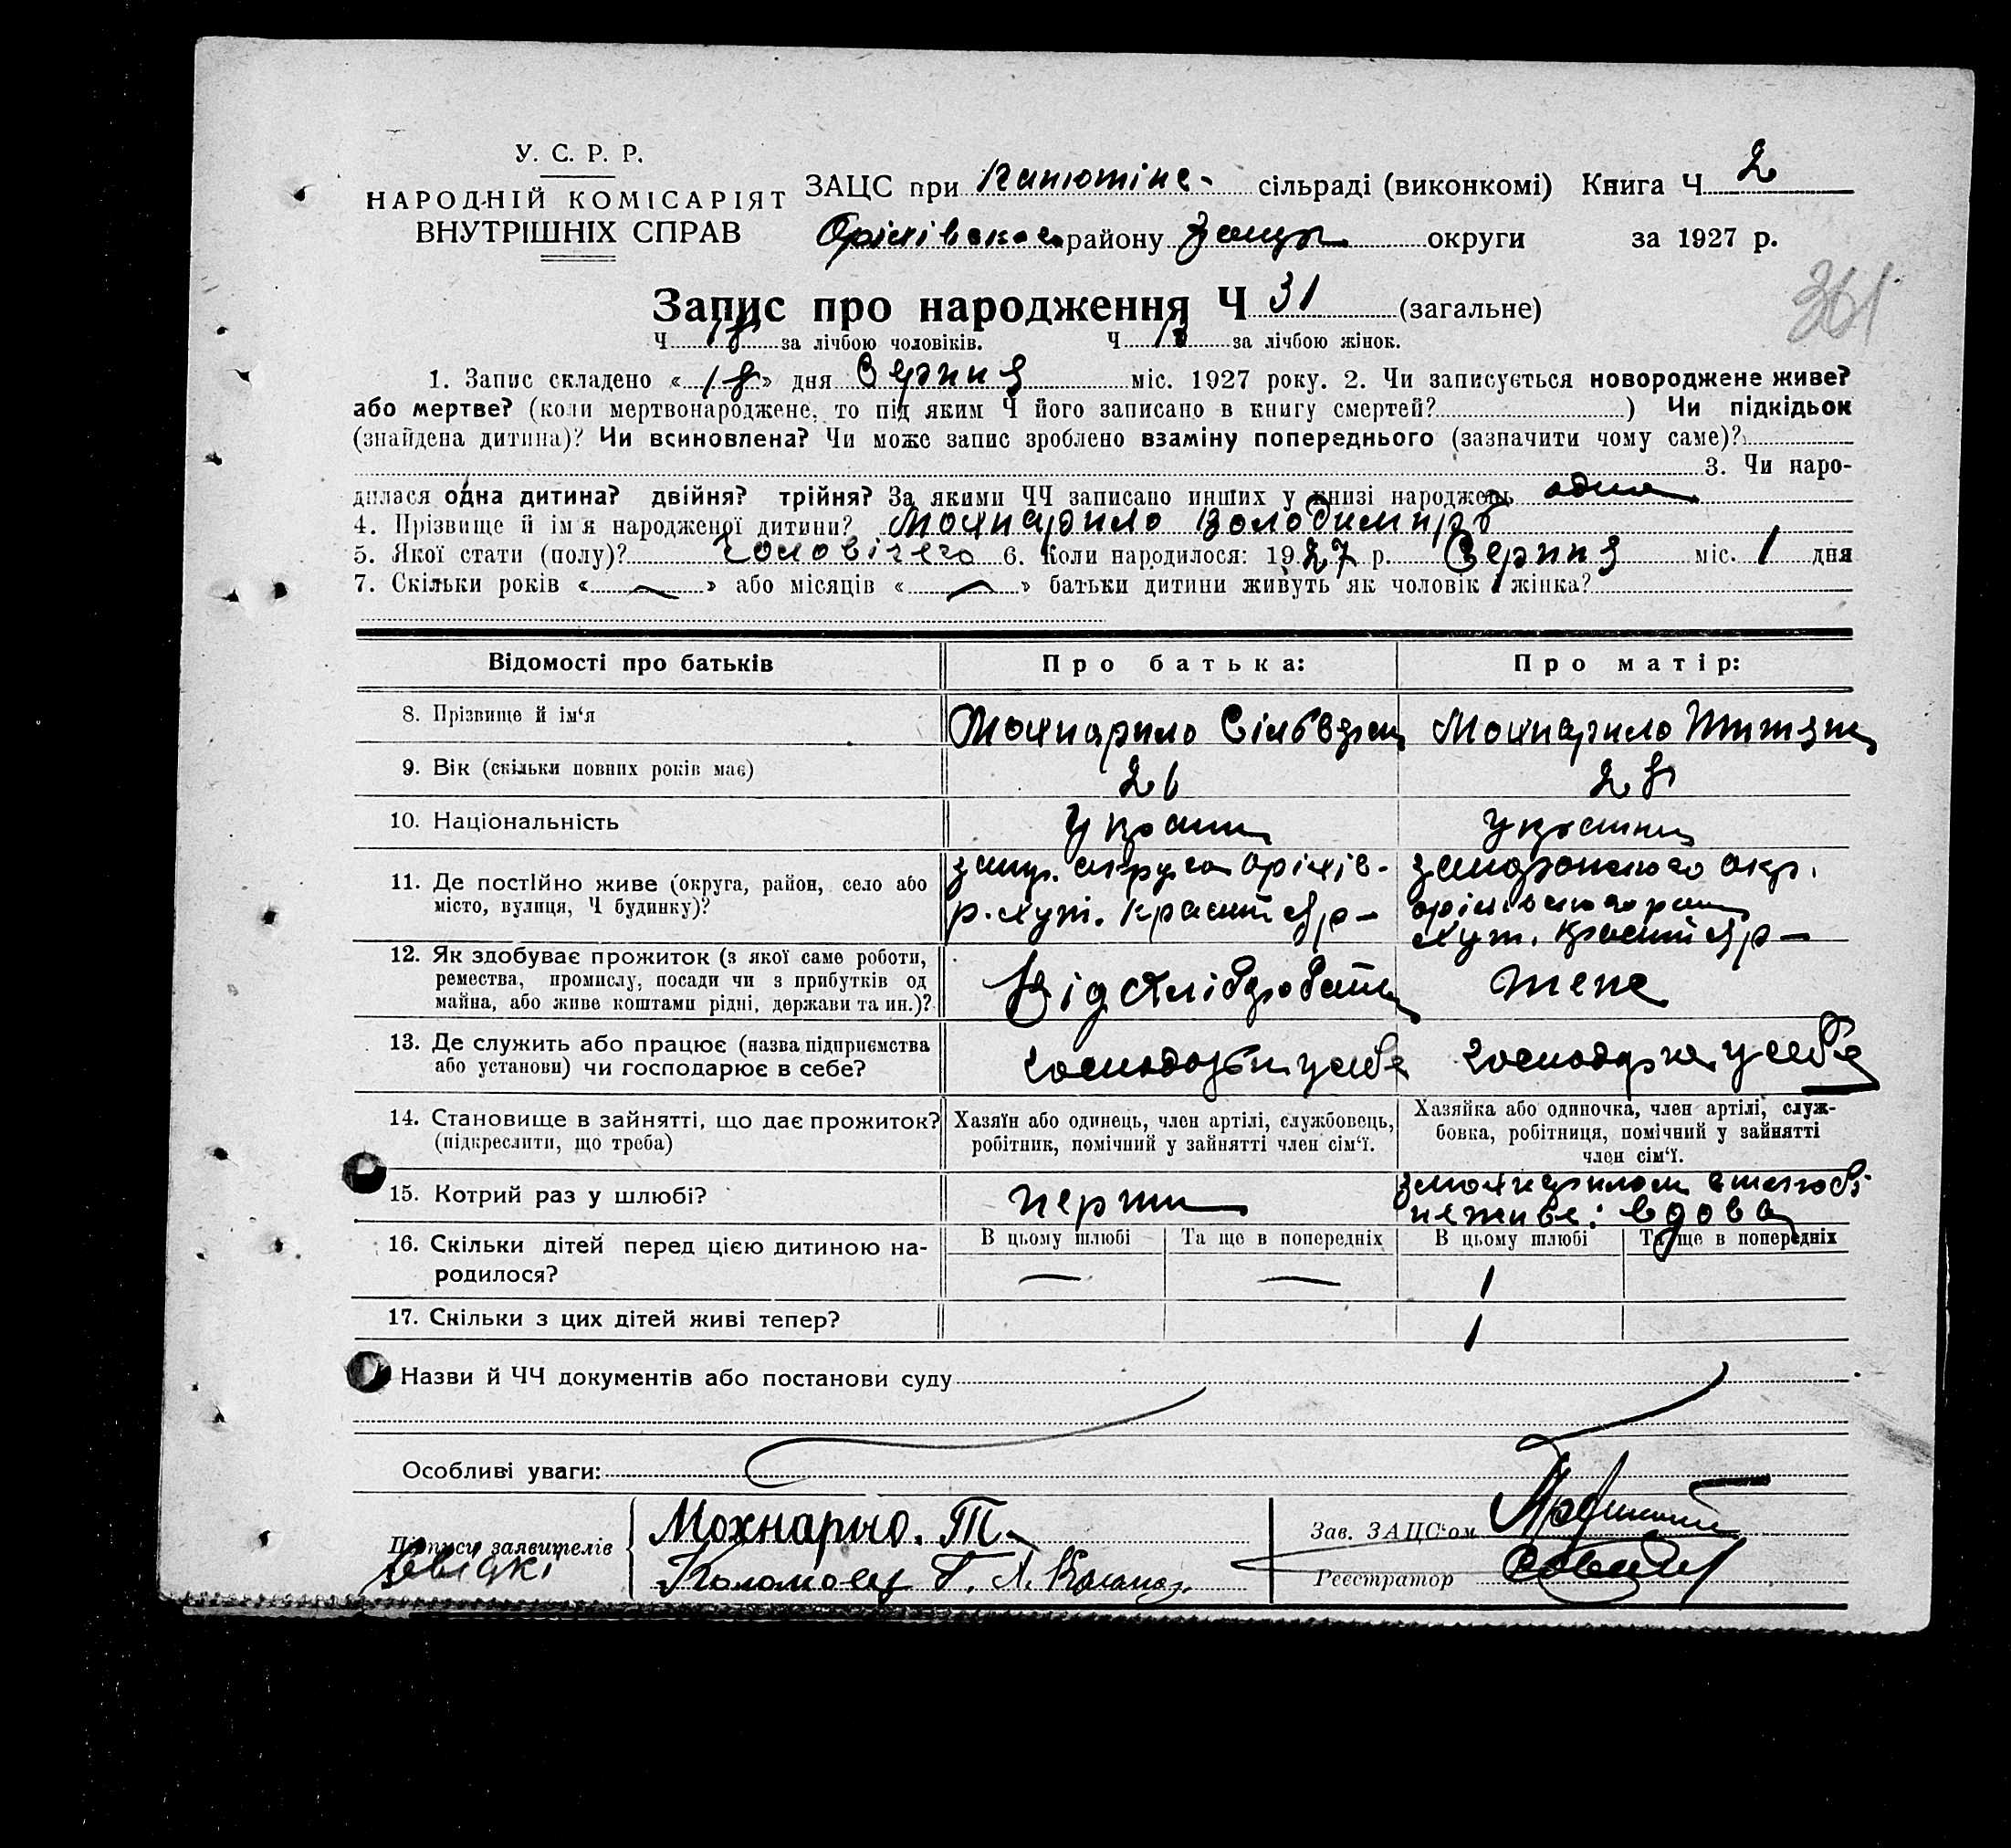 У. С. Р. Р.
НАРОДНІЙ КОМІСАРІЯТ
ВНУТРІШНІХ СПРАВ
ЗАЦС при сільраді (виконкомі) Книга Ч. 2
Оріхівського району Запор округи за 1927 р.
361
Запис про народження Ч 31 (загальне)
Ч. 18 за лічбою чоловіків. Ч. 13 за лічбою жінок.
1. Запис складено «18» дня Серпня міс. 1927 року. 2. Чи записується новороджене живе?
або мертве? (коли мертвонароджене, то під яким Ч його записано в книгу смертей? ) Чи підкідьок
(знайдена дитина)? Чи всиновлена? Чи може запис зроблено взаміну попереднього (зазначити чому саме)?
3. Чи наро-
дилася одна дитина? двійня? трійня? За якими ЧЧ записано инших у книзі народжень одна
4. Прізвище й ім'я народженої дитини? Мохнарило Володимирь
5. Якої стати (полу)? Чоловічего 6. Коли народилося: 1927 р. Серпня міс. 1 дня
7. Скільки років « — » або місяців « — » батьки дитини живуть як чоловік і жінка?
Відомості про батьків Про батька: Про матір:
8. Прізвище й ім'я Мохнарило Мохнарило
9. Вік (скільки повних років має) 26 28
10. Національність Україн україн
11. Де постійно живе (округа, район, село або
місто, вулиця, Ч будинку)?
запор. округа оріхів-
р. хут. Красний Яр —
запорожского окр.
оріхівського рай
хут. Красний Яр —
12. Як здобуває прожиток (з якої саме роботи,
ремества, промислу, посади чи з прибутків од
майна, або живе коштами рідні, держави та ин.)?
Від хліборобства
13. Де служить або працює (назва підприємства
або установи) чи господарює в себе?
господарь у себе господарка у себе
14. Становище в зайнятті, що дає прожиток?
(підкреслити, що треба)
Хазяїн або одинець, член артілі, службовець,
робітник, помічний у зайнятті член сім'ї.
Хазяйка або одиночка, член артілі, служ-
бовка, робітниця, помічний у зайнятті
член сім'ї.
15. Котрий раз у шлюбі? перший
змохнарилом
неживе: вдова
16. Скільки дітей перед цією дитиною на-
родилося?
В цьому шлюбі Та ще в попередніх В цьому шлюбі Та ще в попередніх
— — 1
17. Скільки з цих дітей живі тепер? 1
Назви й ЧЧ документів або постанови суду
Особливі уваги:
Підписи заявителів Мохнарило. Т.
Свідкі Коломоец Г. Л.
Зав. ЗАЦС'ом
Реєстратор